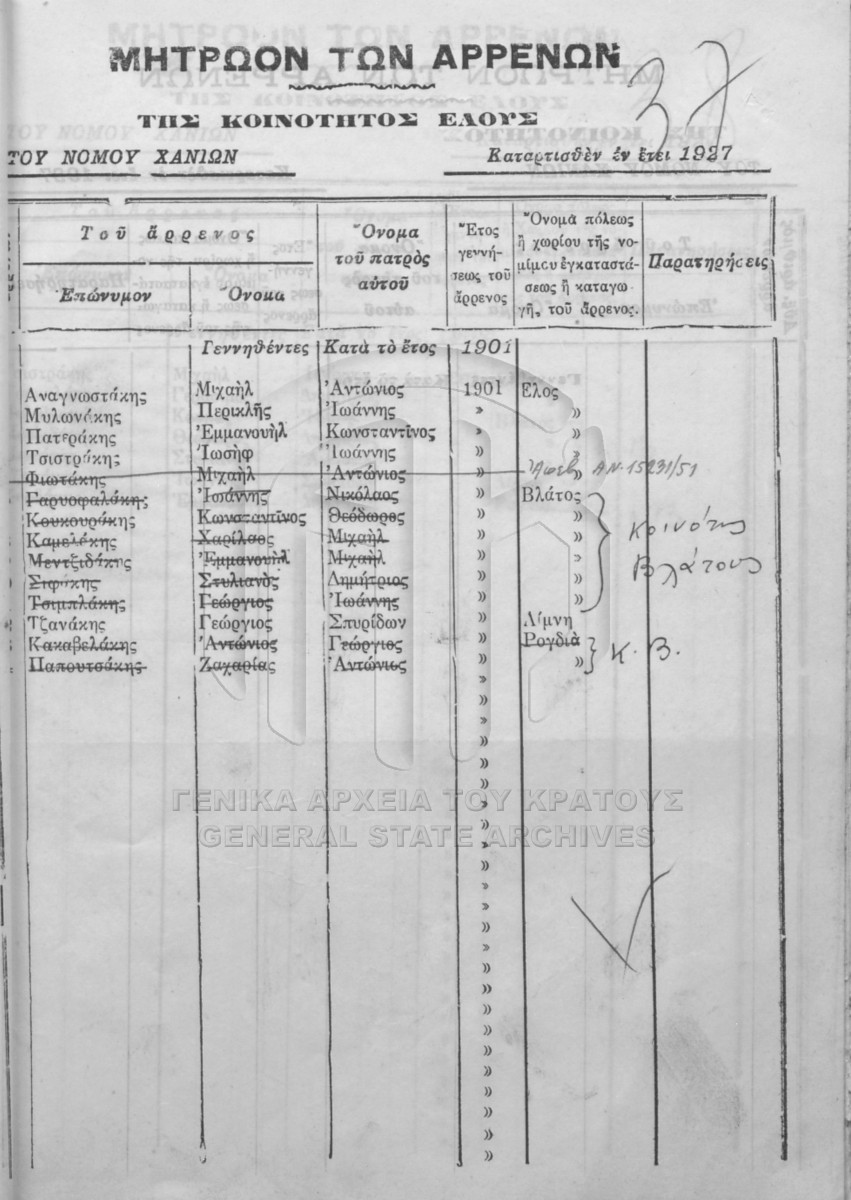 ΜΗΤΡΩΟΝ ΤΩΝ ΑΡΡΕΝΩΝ
37
ΤΗΣ ΚΟΙΝΟΤΗΤΟΣ ΕΛΟΥΣ
ΤΟΥ ΝΟΜΟΥ ΧΑΝΙΩΝ Καταρτισθὲν ἐν ἔτει 1927
Τοῦ ἄρρενος
Ἐπώνυμον Ὄνομα
Ὄνομα
τοῦ πατρὸς
αὐτοῦ
Ἔτος
γεννή-
σεως τοῦ
ἄρρενος
Ὄνομα πόλεως
ἢ χωρίου τῆς νο-
μίμου ἐγκαταστά-
σεως ἢ καταγω
γῆς, τοῦ ἄρρενος.
Παρατηρήσεις
Γεννηθέντες Κατὰ τὸ ἔτος 1901
Αναγνωστάκης Μιχαὴλ Ἀντώνιος 1901 Ἕλος
Μυλωνάκης Περικλῆς Ἰωάννης » »
Πατεράκης Ἐμμανουὴλ Κωνσταντῖνος » »
Τσιστράκης Ἰωσὴφ Ἰωάννης » »
Φιωτάκης Μιχαὴλ Ἀντώνιος » » ΑΝ. 15231/51
Γαρυοφαλάκης Ἰωάννης Νικόλαος » Βλάτος
Κουκουράκης Κωνσταντῖνος Θεόδωρος » » Κοινότης
Καμελάκης Χαρίλαος Μιχαὴλ » »
Μεντζιδάκης Ἐμμανουὴλ Μιχαὴλ » » Βλάτους
Σιφάκης Στυλιανὸς Δημήτριος » »
Τσιμπλάκης Γεώργιος Ἰωάννης » »
Τζανάκης Γεώργιος Σπυρίδων » Λίμνη
Κακαβελάκης Ἀντώνιος Γεώργιος » Ρογδιὰ
Παπουτσάκης Ζαχαρίας Ἀντώνιος » » Κ. Β.
»
»
»
»
»
»
»
»
»
»
»
»
»
»
»
»
»
»
»
»
»
»
»
»
ΓΕΝΙΚΑ ΑΡΧΕΙΑ ΤΟΥ ΚΡΑΤΟΥΣ
GENERAL STATE ARCHIVES